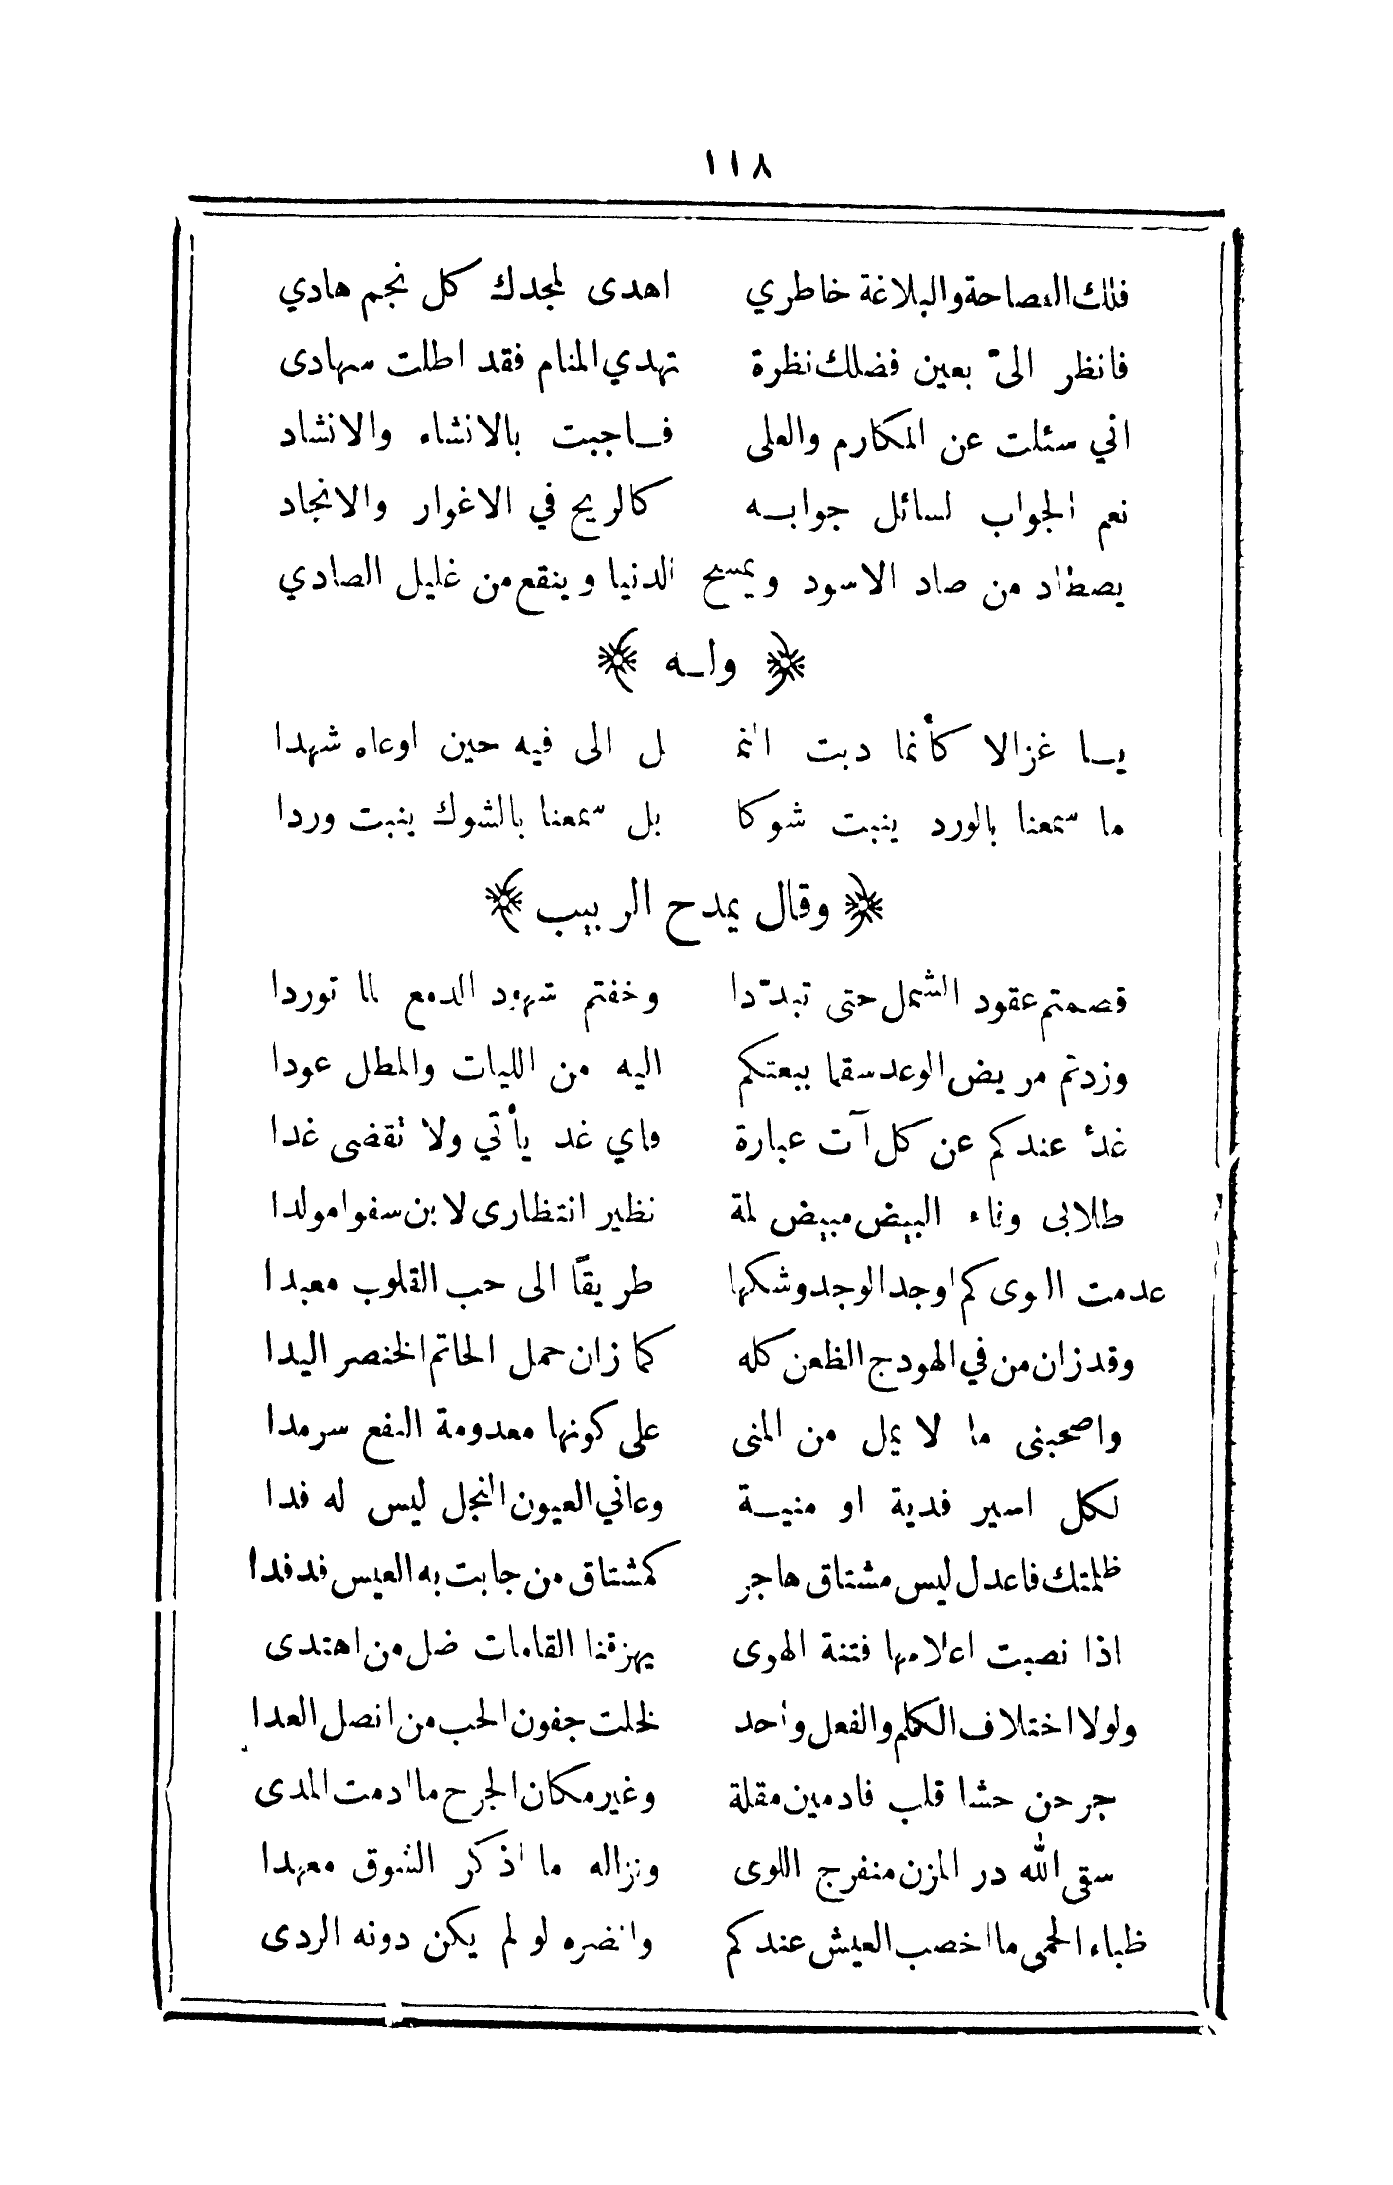 ١١٨
فلك الفصاحة والبلاغة خاطري اهدى لمجدك كل نجم هادي
فانظر الىّ بعين فضلك نظرة تهدي المنام فقد اطلت سهادى
اني سئلت عن المكارم والعلى فاجبت بالانشاء والانشاد
نعم الجواب لسائل جوابه كالريح في الاغوار والانجاد
يصطاد من صاد الاسود ويمسح الدنيا وينقع من غليل الصادي
﴿ وله ﴾
يا غزالا كأنما دبت النم ل الى فيه حين اوعاه شهدا
ما سمعنا بالورد ينبت شوكا بل سمعنا بالشوك ينبت وردا
﴿ وقال يمدح الربيب ﴾
قصمتم عقود الشمل حتى تبدّدا وخفتم شهود الدمع لما توردا
وزدتم مريض الوعد سقما ببعتكم اليه من الليات والمطل عودا
غدٌ عندكم عن كل آت عبارة واي غد يأتي ولا تقضى غدا
طلابى وفاء البيض مبيض لمة نظير انتظارى لابن سفوا مولدا
عدمت الهوى كم اوجد الوجد وشكها طريقًا الى حب القلوب معبدا
وقد زان من في الهودج الظعن كله كما زان حمل الخاتم الخنصر اليدا
واصحبنى ما لا يمل من المنى على كونها معدومة النفع سرمدا
لكل اسير فدية او منية وعاني العيون النجل ليس له فدا
ظلمتك فاعدل ليس مشتاق هاجر كمشتاق من جابت به العيس فدفدا
اذا نصبت اعلامها فتنة الهوى بهزقنا القامات ضل من اهتدى
ولولا اختلاف الكلم والفعل واحد لخلت جفون الحب من انصل العدا
جرحن حشا قلب فادمين مقلة وغير مكان الجرح ما ادمت المدى
سقى الله در المزن منفرج اللوى ونزاله ما اذكر الشوق معهدا
ظباء الحمى ما اخصب العيش عندكم وانضره لو لم يكن دونه الردى